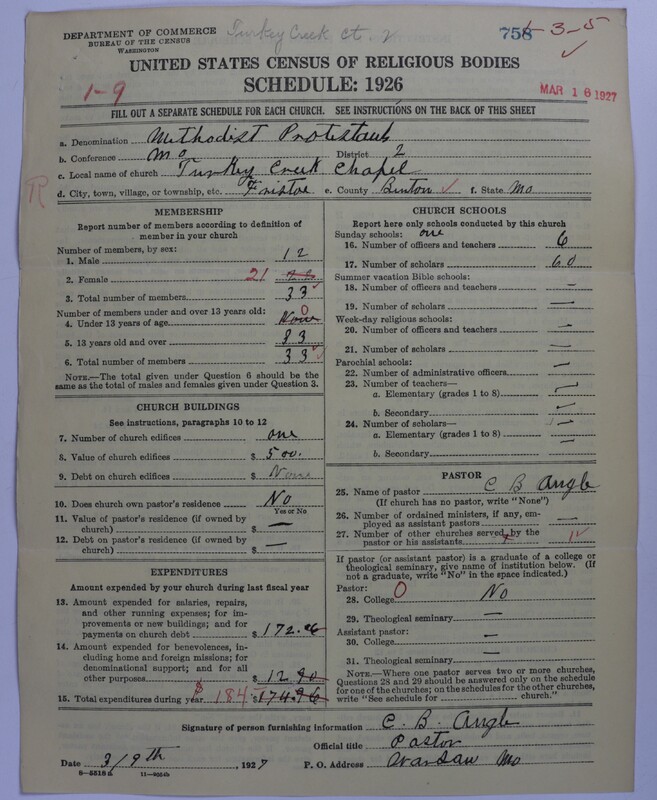 DEPARTMENT OF COMMERCE
BUREAU OF THE CENSUS
WASHINGTON
Turkey Creek Ct.
758 3-5
UNITED STATES CENSUS OF RELIGIOUS BODIES
SCHEDULE: 1926
1-9
MAR 16 1927
FILL OUT A SEPARATE SCHEDULE FOR EACH CHURCH. SEE INSTRUCTIONS ON THE BACK OF THIS SHEET
a. Denomination Methodist Protestant
b. Conference Mo District 2
c. Local name of church Turkey Creek Chapel
R
d. City, town, village, or township, etc. Fristoe e. County Benton f. State Mo
MEMBERSHIP
Report number of members according to definition of
member in your church
Number of members, by sex:
1. Male 12
2. Female 21
3. Total number of members 33
Number of members under and over 13 years old:
4. Under 13 years of age None 0
5. 13 years old and over 33
6. Total number of members 33
NOTE.—The total given under Question 6 should be
same as the total of males and females given under Question 3.
CHURCH BUILDINGS
See instructions, paragraphs 10 to 12
7. Number of church edifices one
8. Value of church edifices $ 500.
9. Debt on church edifices $ None
10. Does church own pastor's residence No
Yes or No
11. Value of pastor's residence (if owned by
church) $ —
12. Debt on pastor's residence (if owned by
church) $ —
EXPENDITURES
Amount expended by your church during last fiscal year
13. Amount expended for salaries, repairs,
and other running expenses; for im-
provements or new buildings; and for
payments on church debt $ 172.06
14. Amount expended for benevolences,
including home and foreign missions; for
denominational support; and for all
other purposes $ 12.90
15. Total expenditures during year $ 184 $ 174.96
CHURCH SCHOOLS
Report here only schools conducted by this church
Sunday schools: one
16. Number of officers and teachers 6
17. Number of scholars 60
Summer vacation Bible schools:
18. Number of officers and teachers —
19. Number of scholars —
Week-day religious schools:
20. Number of officers and teachers —
21. Number of scholars —
Parochial schools:
22. Number of administrative officers —
23. Number of teachers—
a. Elementary (grades 1 to 8) —
b. Secondary —
24. Number of scholars—
a. Elementary (grades 1 to 8) —
b. Secondary —
PASTOR
25. Name of pastor C B Angle
(If church has no pastor, write "None")
26. Number of ordained ministers, if any, em-
ployed as assistant pastors —
27. Number of other churches served by the
pastor or his assistants
If pastor (or assistant pastor) is a graduate of a college or
theological seminary, give name of institution below. (If
not a graduate, write "No" in the space indicated.)
Pastor:
28. College 0 No
29. Theological seminary —
Assistant pastor:
30. College —
31. Theological seminary —
NOTE.—Where one pastor serves two or more churches,
Questions 28 and 29 should be answered only on the schedule
for one of the churches; on the schedules for the other churches,
write "See schedule for church."
Signature of person furnishing information C. B. Angle
Official title Pastor
Date 3/9th, 1927 P. O. Address Warsaw Mo
8-5516a 11-9054b